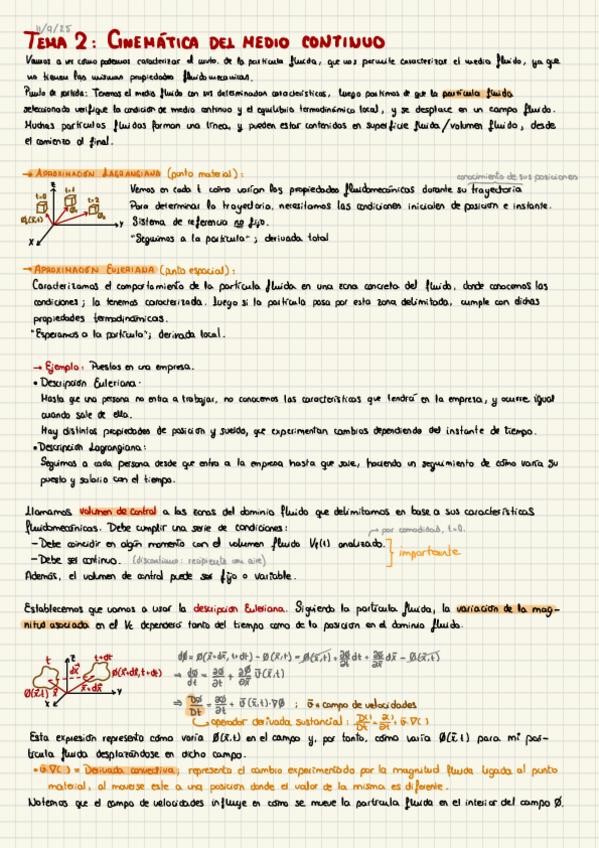 11/9/25
TEMA 2: CINEMÁTICA DEL MEDIO CONTINUO
Vamos a ver cómo podemos caracterizar el mvto. de la partícula fluida, que nos permite caracterizar el medio fluido, ya que
no tienen las mismas propiedades fluidomecánicas.
Punto de partida: Tenemos el medio fluido con sus determinadas características, luego partimos de que la partícula fluida
seleccionada verifique la condición de medio continuo y el equilibrio termodinámico local, y se desplace en un campo fluido.
Muchas partículas fluidas forman una línea, y pueden estar contenidas en superficie fluida/volumen fluido, desde
el comienzo al final.
→ APROXIMACIÓN LAGRANGIANA (punto material):
conocimiento de sus posiciones
Vemos en cada t cómo varían las propiedades fluidomecánicas durante su trayectoria
Para determinar la trayectoria, necesitamos las condiciones iniciales de posición e instante.
Sistema de referencia no fijo.
"Seguimos a la partícula"; derivada total
z
t=0
t=1
t=2
y
x
→ APROXIMACIÓN EULERIANA (punto espacial):
Caracterizamos el comportamiento de la partícula fluida en una zona concreta del fluido, donde conocemos las
condiciones; la tenemos caracterizada. Luego si la partícula pasa por esta zona delimitada, cumple con dichas
propiedades termodinámicas.
"Esperamos a la partícula"; derivada local.
→ Ejemplo: Puestos en una empresa.
• Descripción Euleriana:
Hasta que una persona no entra a trabajar, no conocemos las características que tendrá en la empresa, y ocurre igual
cuando sale de ella.
Hay distintas propiedades de posición y sueldo, que experimentan cambios dependiendo del instante de tiempo.
• Descripción Lagrangiana:
Seguimos a cada persona desde que entra a la empresa hasta que sale, haciendo un seguimiento de cómo varía su
puesto y salario con el tiempo.
Llamamos volumen de control a las zonas del dominio fluido que delimitamos en base a sus características
fluidomecánicas. Debe cumplir una serie de condiciones:
→ por comodidad, t=0.
– Debe coincidir en algún momento con el volumen fluido Vf(t) analizado.
– Debe ser continuo. (discontinuo: recipiente con aire)
importante
Además, el volumen de control puede ser fijo o variable.
Establecemos que vamos a usar la descripción Euleriana. Siguiendo la partícula fluida, la variación de la mag-
nitud asociada en el Vc dependerá tanto del tiempo como de la posición en el dominio fluido.
t
z
t+dt
dx̄
∅(x̄+dx̄, t+dt)
∅(x̄,t)
x̄
x̄+dx̄
y
x
d∅ = ∅(x̄+dx̄, t+dt) - ∅(x̄,t) = ∅(x̄,t) + ∂∅/∂t dt + ∂∅/∂x̄ dx̄ - ∅(x̄,t)
⇒ d∅/dt = ∂∅/∂t + ∂∅/∂x̄ v̄(x̄,t)
⇒ D∅/Dt = ∂∅/∂t + v̄(x̄,t)·∇∅ ; v̄ = campo de velocidades
operador derivada sustancial: D( )/Dt = ∂( )/∂t + v̄·∇( )
Esta expresión representa cómo varía ∅(x̄,t) en el campo y, por tanto, cómo varía ∅(x̄,t) para mi par-
tícula fluida desplazándose en dicho campo.
• v̄·∇( ) = Derivada convectiva; representa el cambio experimentado por la magnitud fluida ligada al punto
material, al moverse este a una posición donde el valor de la misma es diferente.
Notemos que el campo de velocidades influye en cómo se mueve la partícula fluida en el interior del campo ∅.